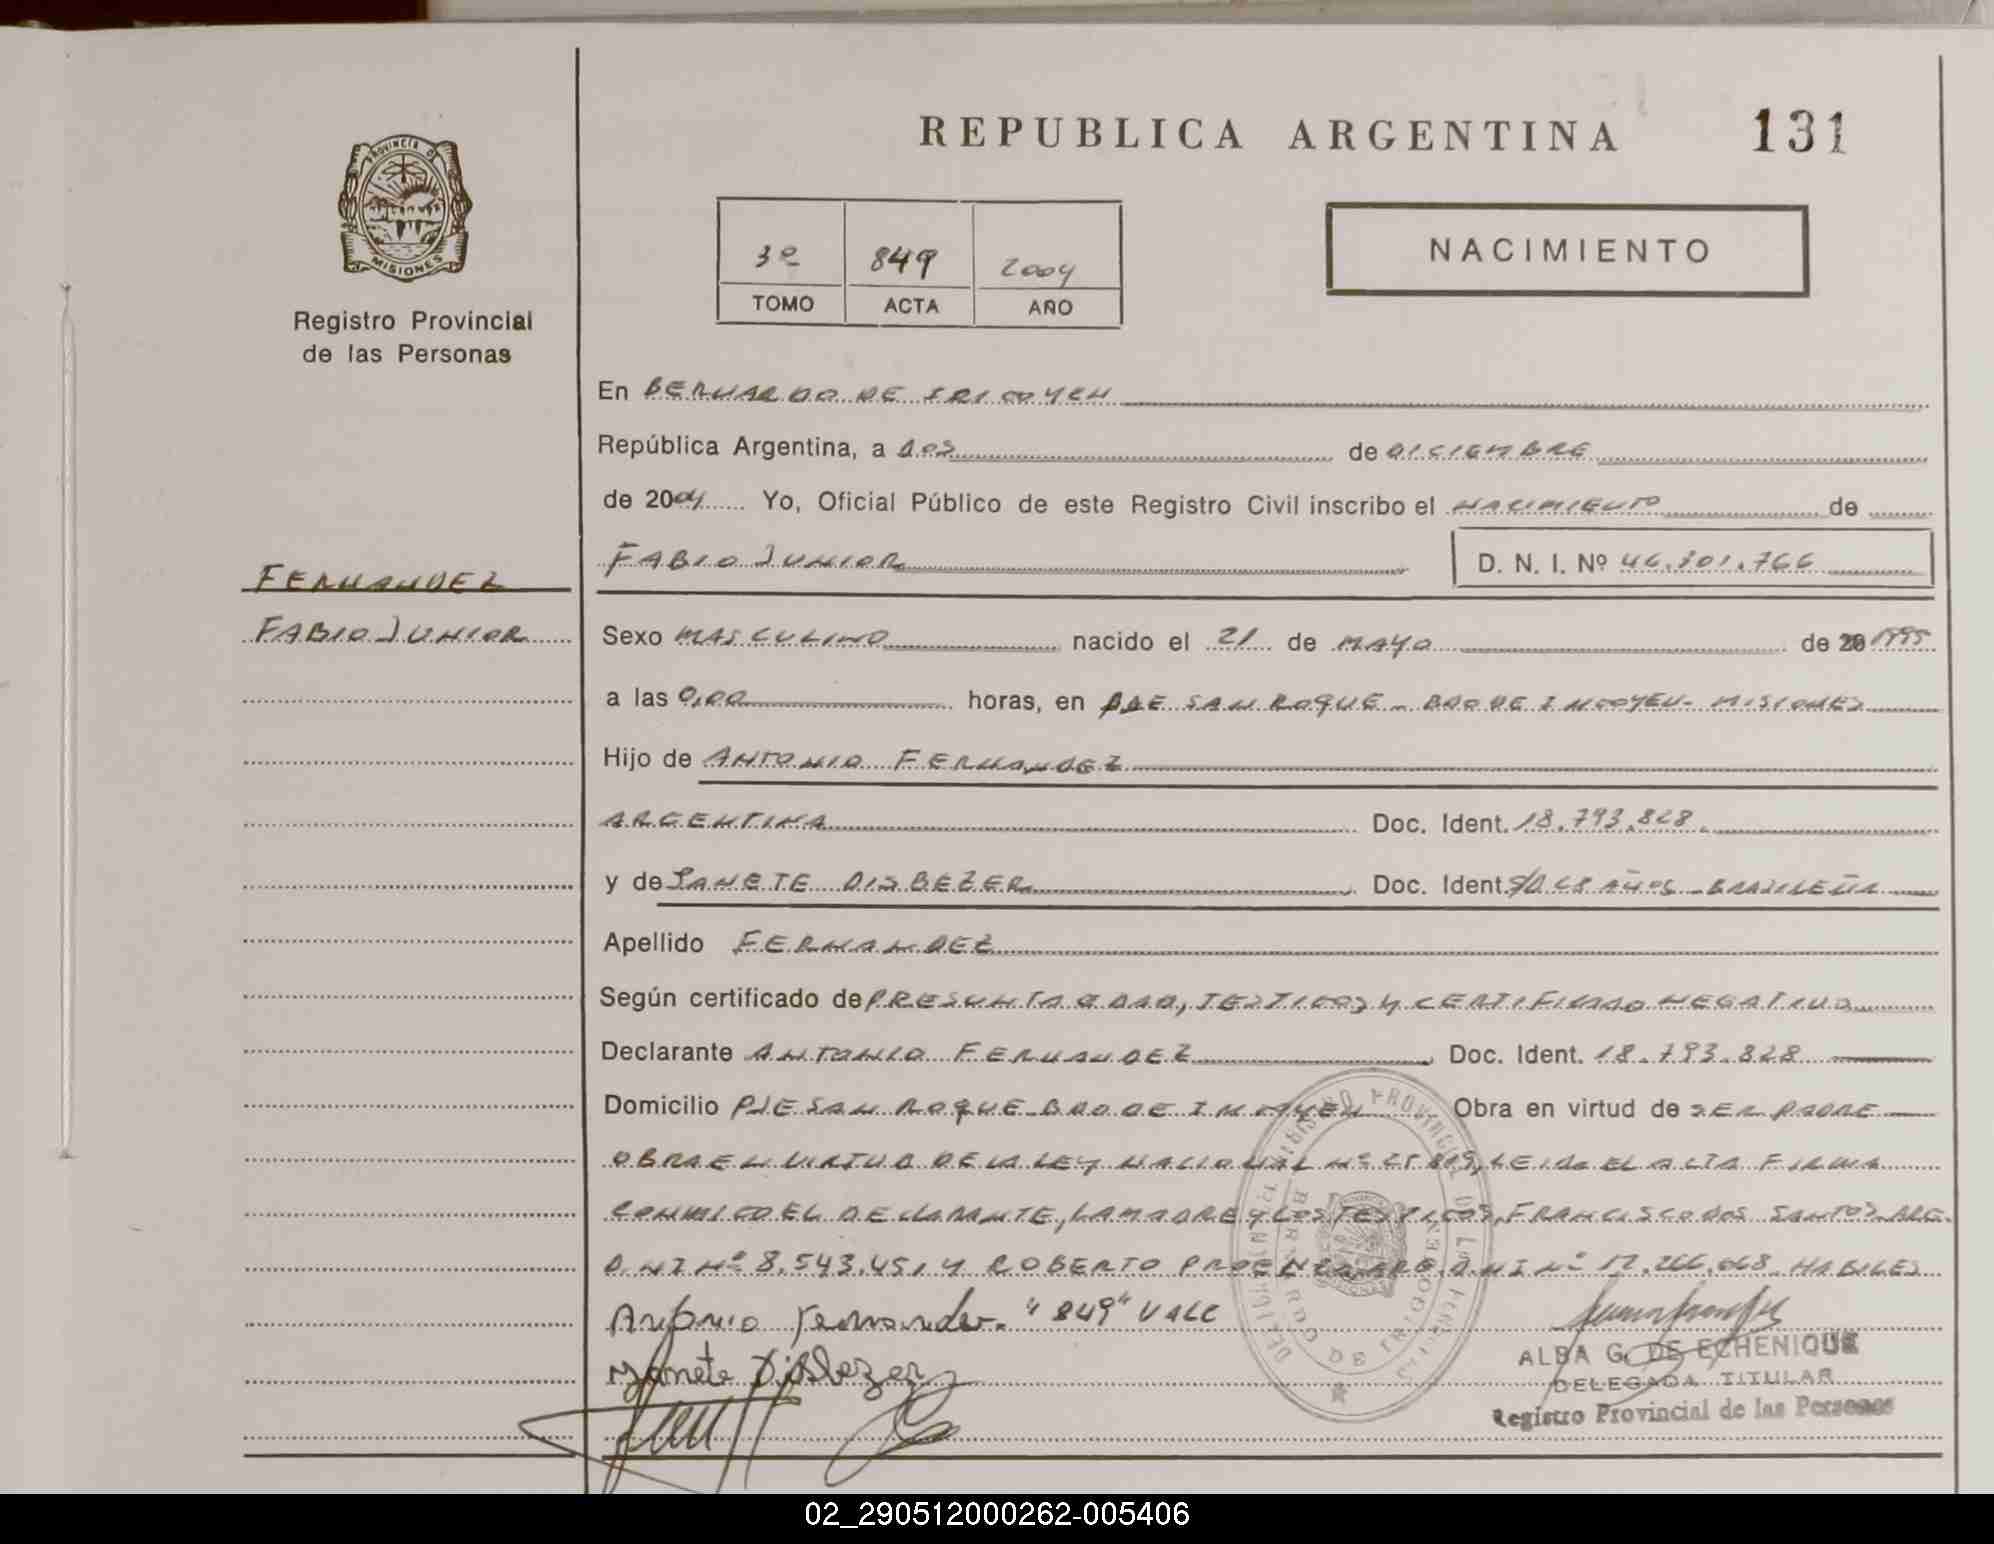 REPUBLICA ARGENTINA
131
PROVINCIA DE
MISIONES
Registro Provincial
de las Personas
3º 849 2004
TOMO ACTA AÑO
NACIMIENTO
En BERNARDO DE IRIGOYEN
República Argentina, a DOS de DICIEMBRE
de 2004 Yo, Oficial Público de este Registro Civil inscribo el NACIMIENTO de
FABIO JUNIOR D. N. I. Nº 46.301.766
FERNANDEZ
FABIO JUNIOR
Sexo MASCULINO nacido el 21 de MAYO de 20 1995
a las 0,00 horas, en PJE SAN ROQUE - BDO DE IRIGOYEN - MISIONES
Hijo de ANTONIO FERNANDEZ
ARGENTINA Doc. Ident. 18.793.828
y de JANETE DISBEZER Doc. Ident. S/D 28 AÑOS - BRASILEÑA
Apellido FERNANDEZ
Según certificado de PRESUNTA EDAD, TESTIGOS Y CERTIFICADO NEGATIVO
Declarante ANTONIO FERNANDEZ Doc. Ident. 18.793.828
Domicilio PJE SAN ROQUE BDO DE IRIGOYEN Obra en virtud de SER PADRE
OBRA EN VIRTUD DE LA LEY NACIONAL Nº 25.819, LEIDA EL ACTA FIRMA
CONMIGO EL DECLARANTE, LA MADRE Y LOS TESTIGOS, FRANCISCO DOS SANTOS ARG.
D.NI Nº 8.543.451 Y ROBERTO PROENZA ARG. D.NI Nº 17.266.068 HABILES
Antonio Fernandez. "849" VALE
Janete Disbezer
ALBA G. DE ECHENIQUE
DELEGADA TITULAR
Registro Provincial de las Personas
02_290512000262-005406